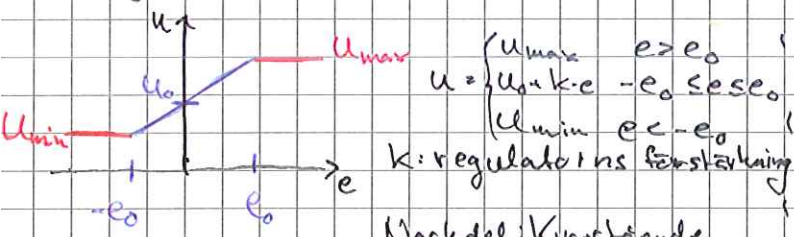 u
Umax
u₀
Umin
e
-e₀
e₀
u = { Umax e > e₀
u₀ + k·e -e₀ ≤ e ≤ e₀
Umin e < -e₀
K: regulatorns förstärkning
Nackdel: Kvarstående